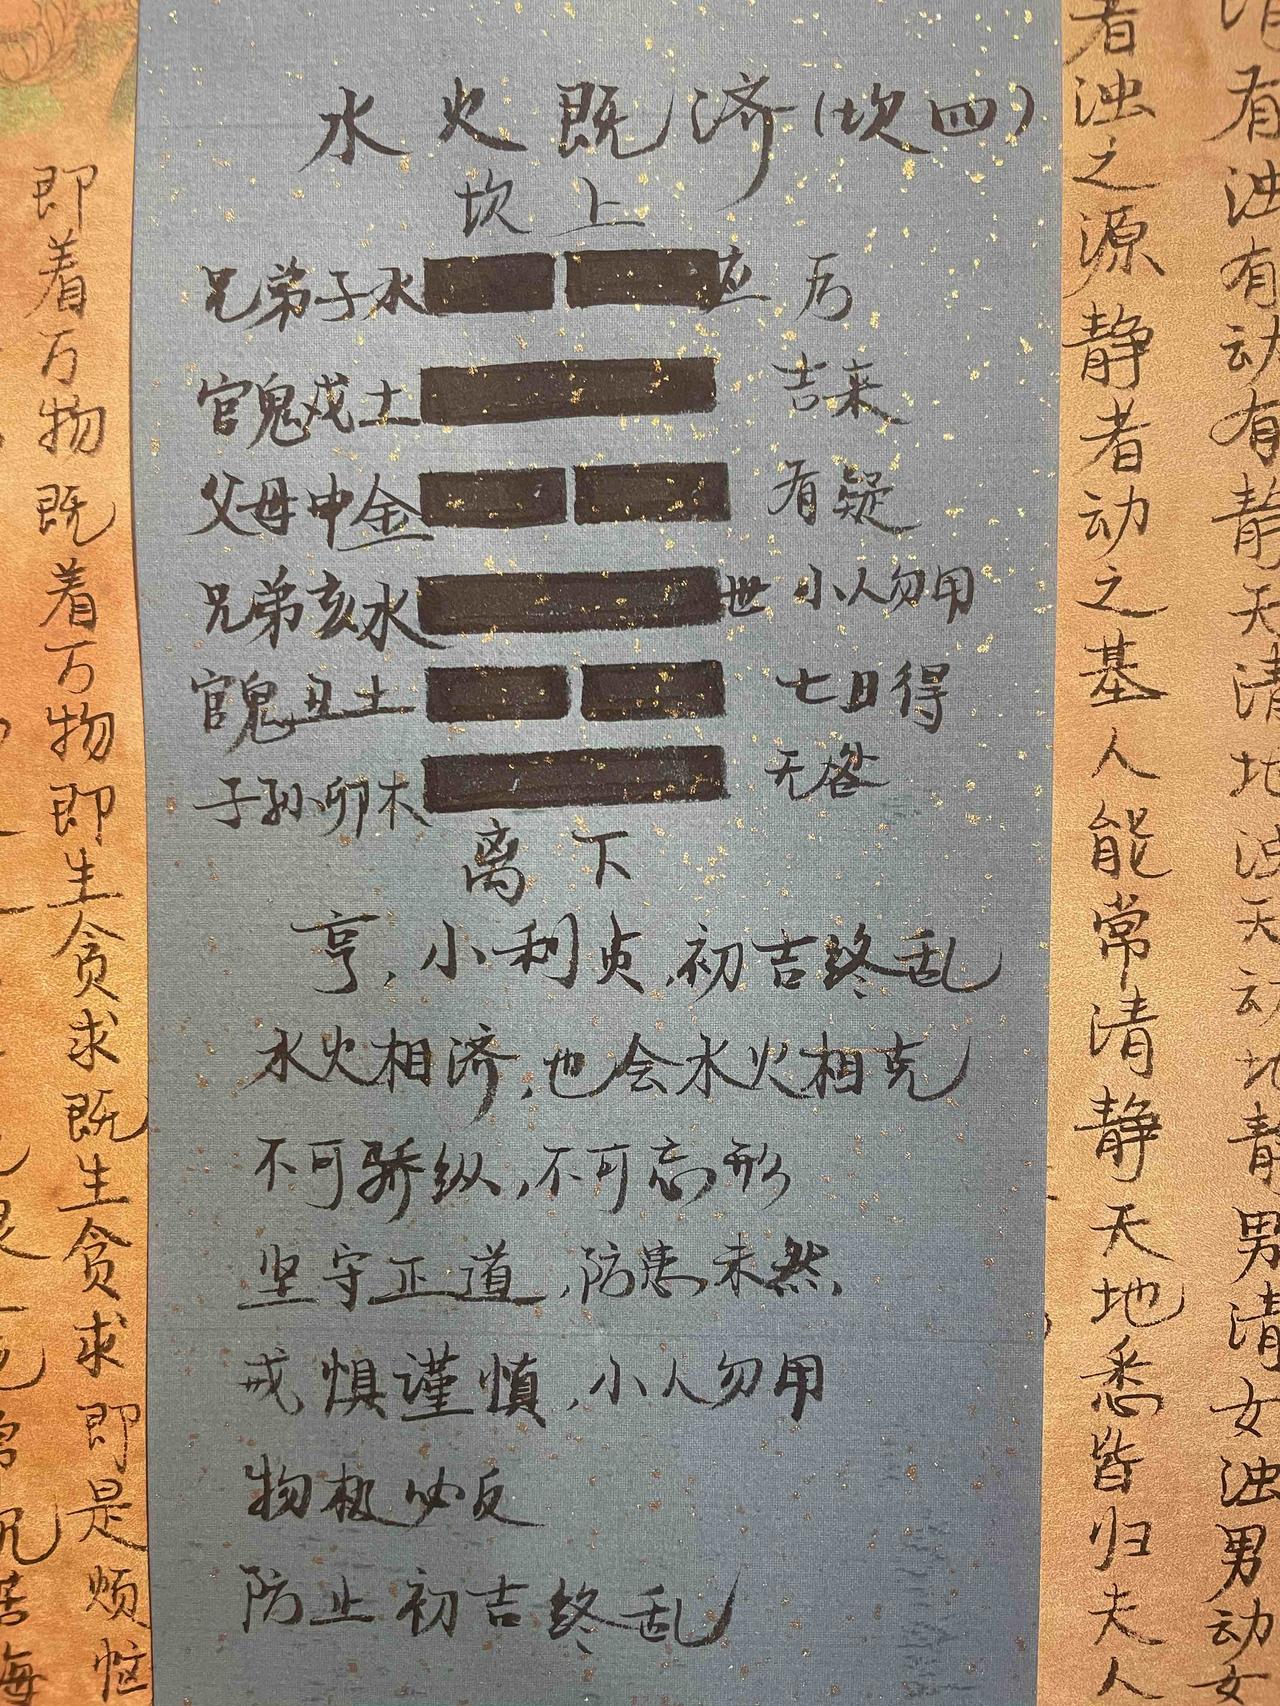 水火既济(坎四)
坎上
兄弟子水 应 厉
官鬼戌土 吉来
父母申金 有疑
兄弟亥水 世 小人勿用
官鬼丑土 七日得
子孙卯木 无咎
离下
亨,小利贞,初吉终乱
水火相济,也会水火相克
不可骄纵,不可忘形
坚守正道,防患未然
戒惧谨慎,小人勿用
物极必反
防止初吉终乱
清有浊有动有静天清地浊天动地静男清女浊男动女
者浊之源静者动之基人能常清静天地悉皆归夫人
即着万物既着万物即生贪求既生贪求即是烦恼